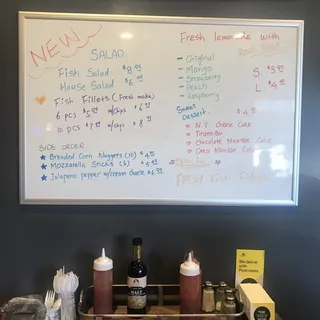 NEW
SALAD
Fish Salad $8.00
House Salad $6.00
Fish Fillets (Fresh made)
6 pcs $5.00 w/chips $6.00
10 pcs $7.00 w/chips $8.00
SIDE ORDER
Breaded Corn Nuggets (10) $4.00
Mozzarella Sticks (6) $5.00
Jalapeno pepper w/cream cheese $6.00
Fresh lemonade with
Real fruit
Original
Mango
Strawberry
Peach
Raspberry
S. $3.00
L $4.00
Sweet
Dessert $4.00
N.Y. Cheese Cake
Tiramisu
Chocolate Mousse Cake
Oreo Mousse Cake
Special
Fried Rice
MALT
We deliver
with
Postmates